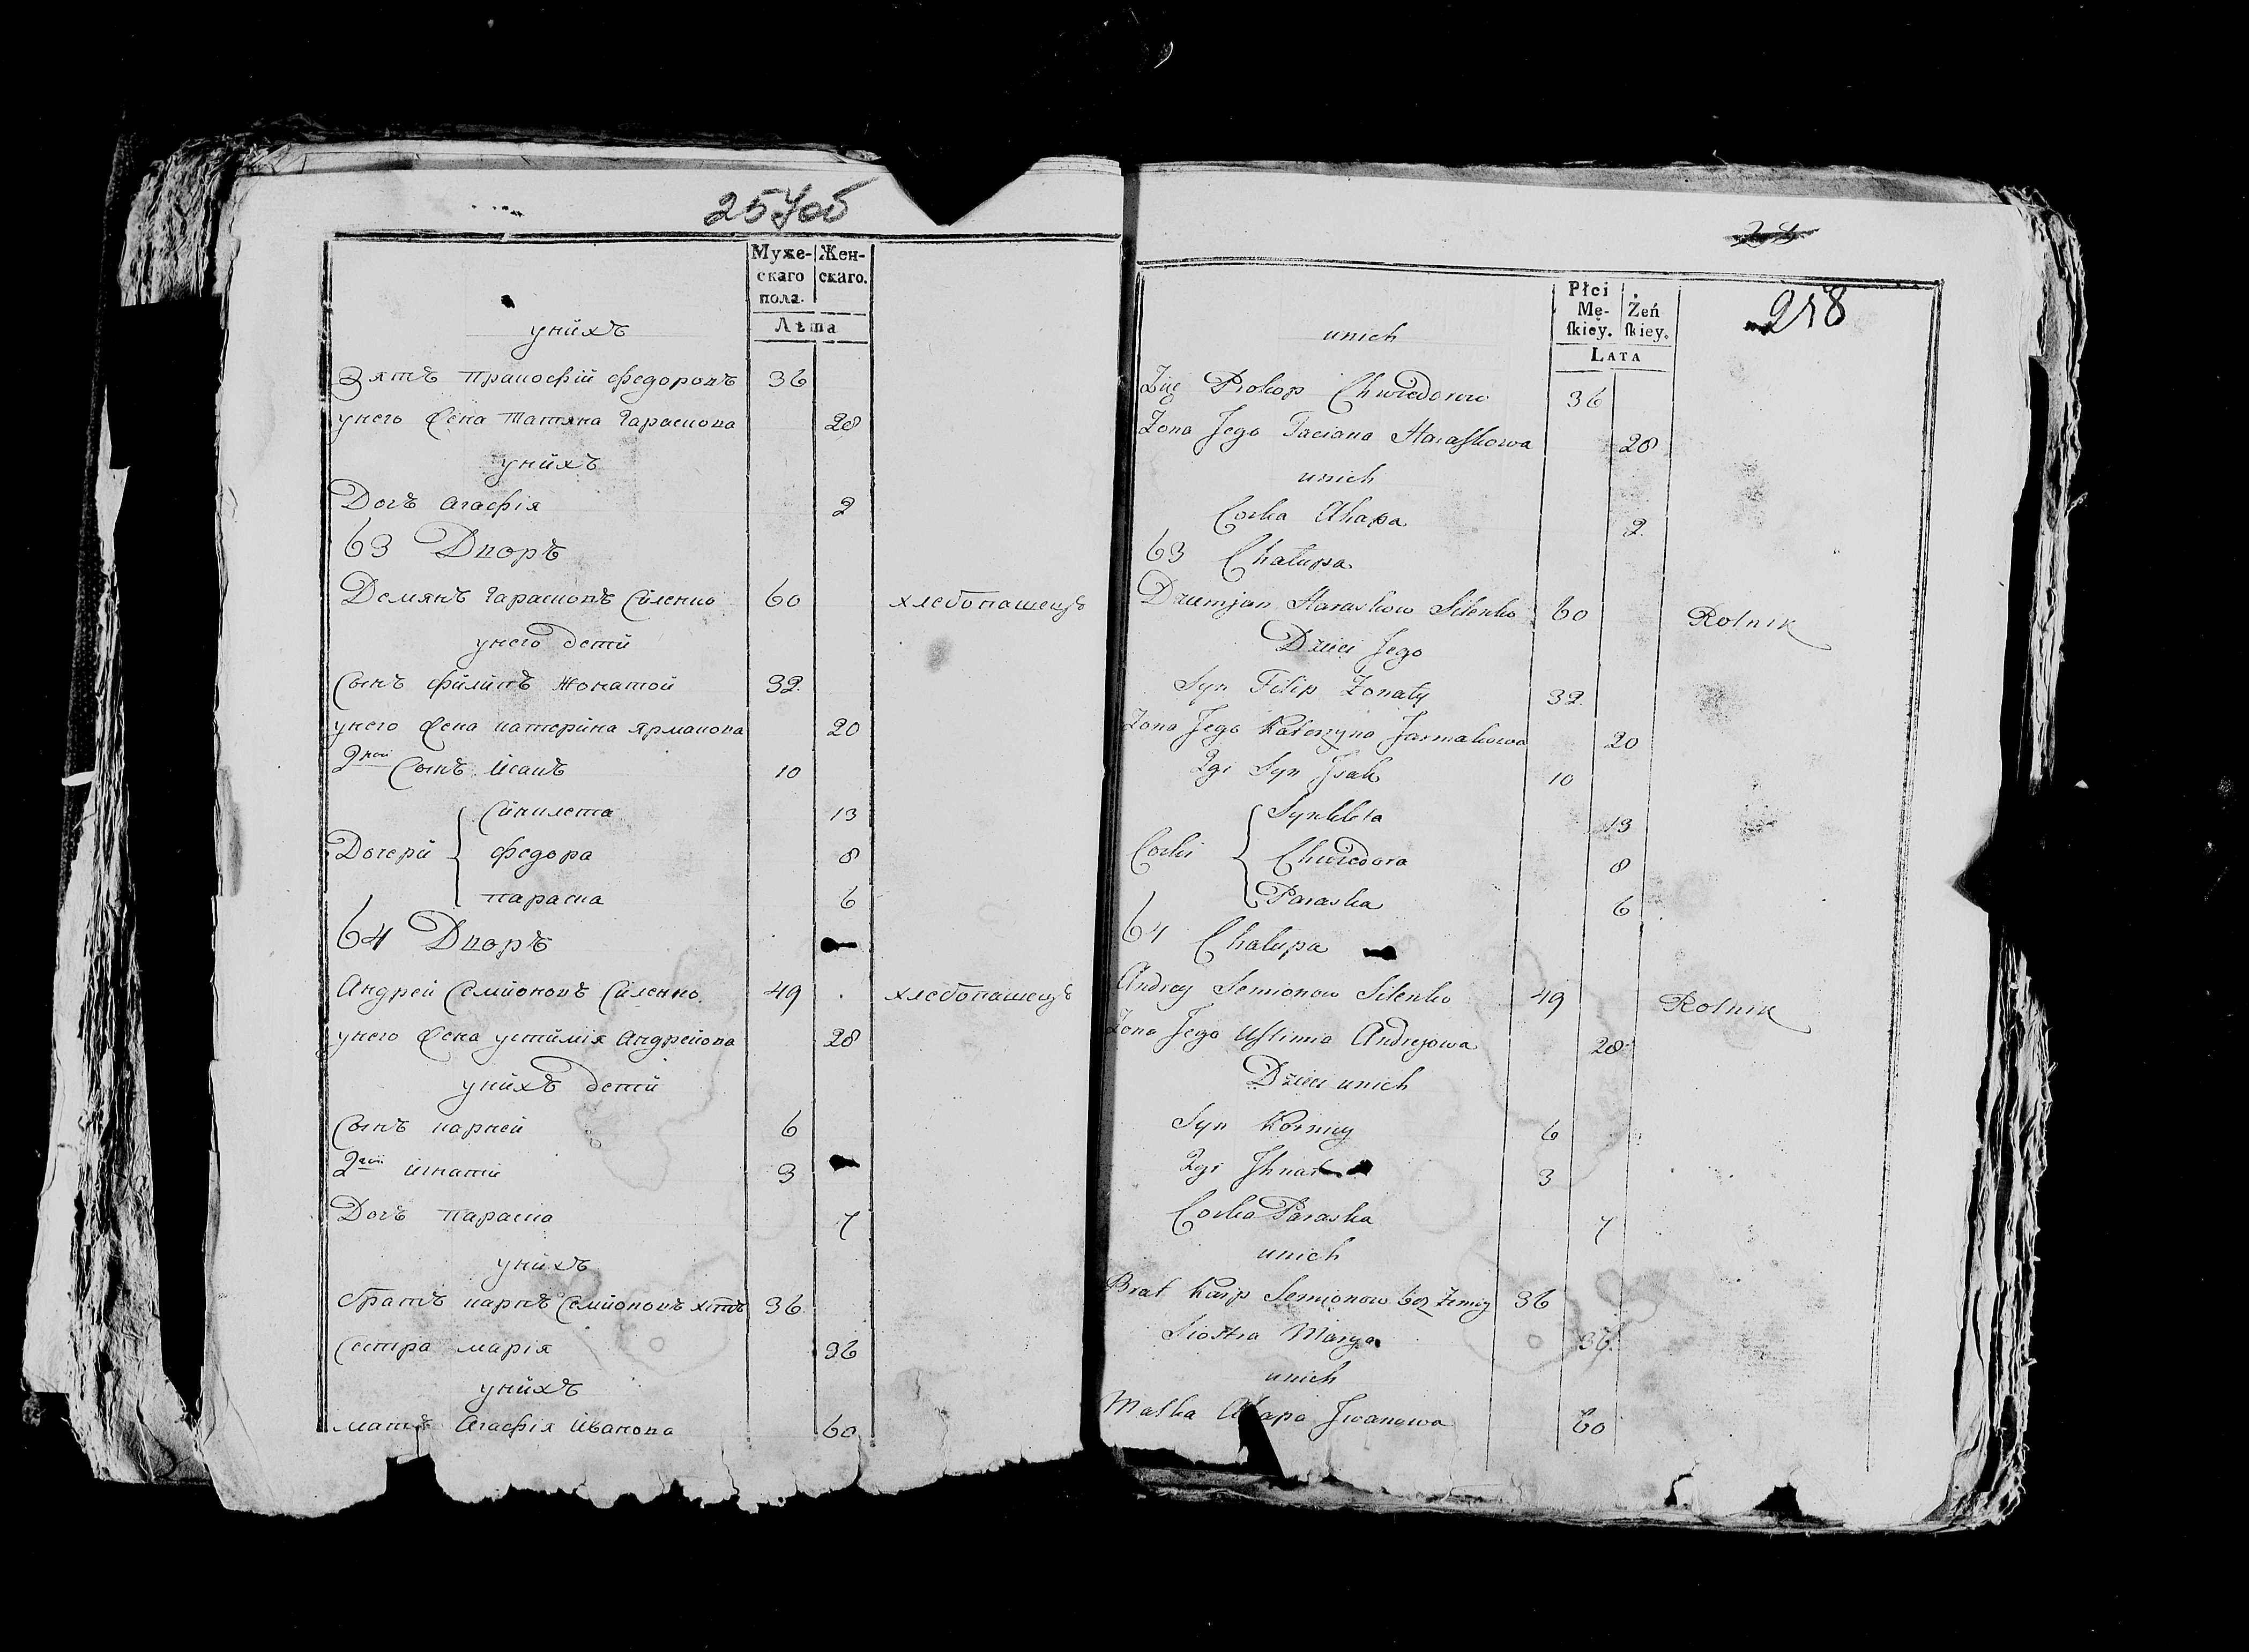 257об
Муже-
скаго
пола.
Жен-
скаго.
Лѣта
унихъ
Зятъ прокофій федоровъ 36
унего Жена татяна Гараскова 28
унихъ
Дочъ агафія 2
63 Дворъ
Демянъ Гарасковъ Силенко 60 хлебопашецъ
унего дети
Сынъ филипъ жонатой 32
унего Жена катерина Ярмакова 20
2гой Сынъ Исакъ 10
Синклета 13
Дочери федора 8
параска 6
64 Дворъ
Андрей Семионовъ Силенко 49 хлебопашецъ
унего Жена устимія Андрейова 28
унихъ дети
Сынъ карней 6
2гой игнатй 3
Дочъ параска 7
унихъ
братъ карпъ Семионовъ 36
Сестра марія 36
унихъ
матъ Агафія Иванова 60
258
Płci
Mę-
skiey.
Żeń
skiey.
LATA
unich
Zięć Prokop Chwiedorow 36
Zona Jego Taciana Haraskowa 28
unich
Corka Ahapa 2
63 Chałupa
Dziemjan Haraskow Silenko 60 Rolnik
Dzieci Jego
Syn Filip Zonaty 32
Zona Jego Katerzyna Jarmakowa 20
2gi Syn Jsak 10
Synkleta 13
Corki Chwiedora 8
Paraska 6
64 Chałupa
Andrey Semionow Silenko 49 Rolnik
Zona Jego Ustimia Andrejowa 28
Dzieci unich
Syn Korniey 6
2gi 3
Corka Paraska 7
unich
Brat Karp Semionow bez Zenny 36
Siostra Marya 36
unich
Matka Ahapa Jwanowa 60